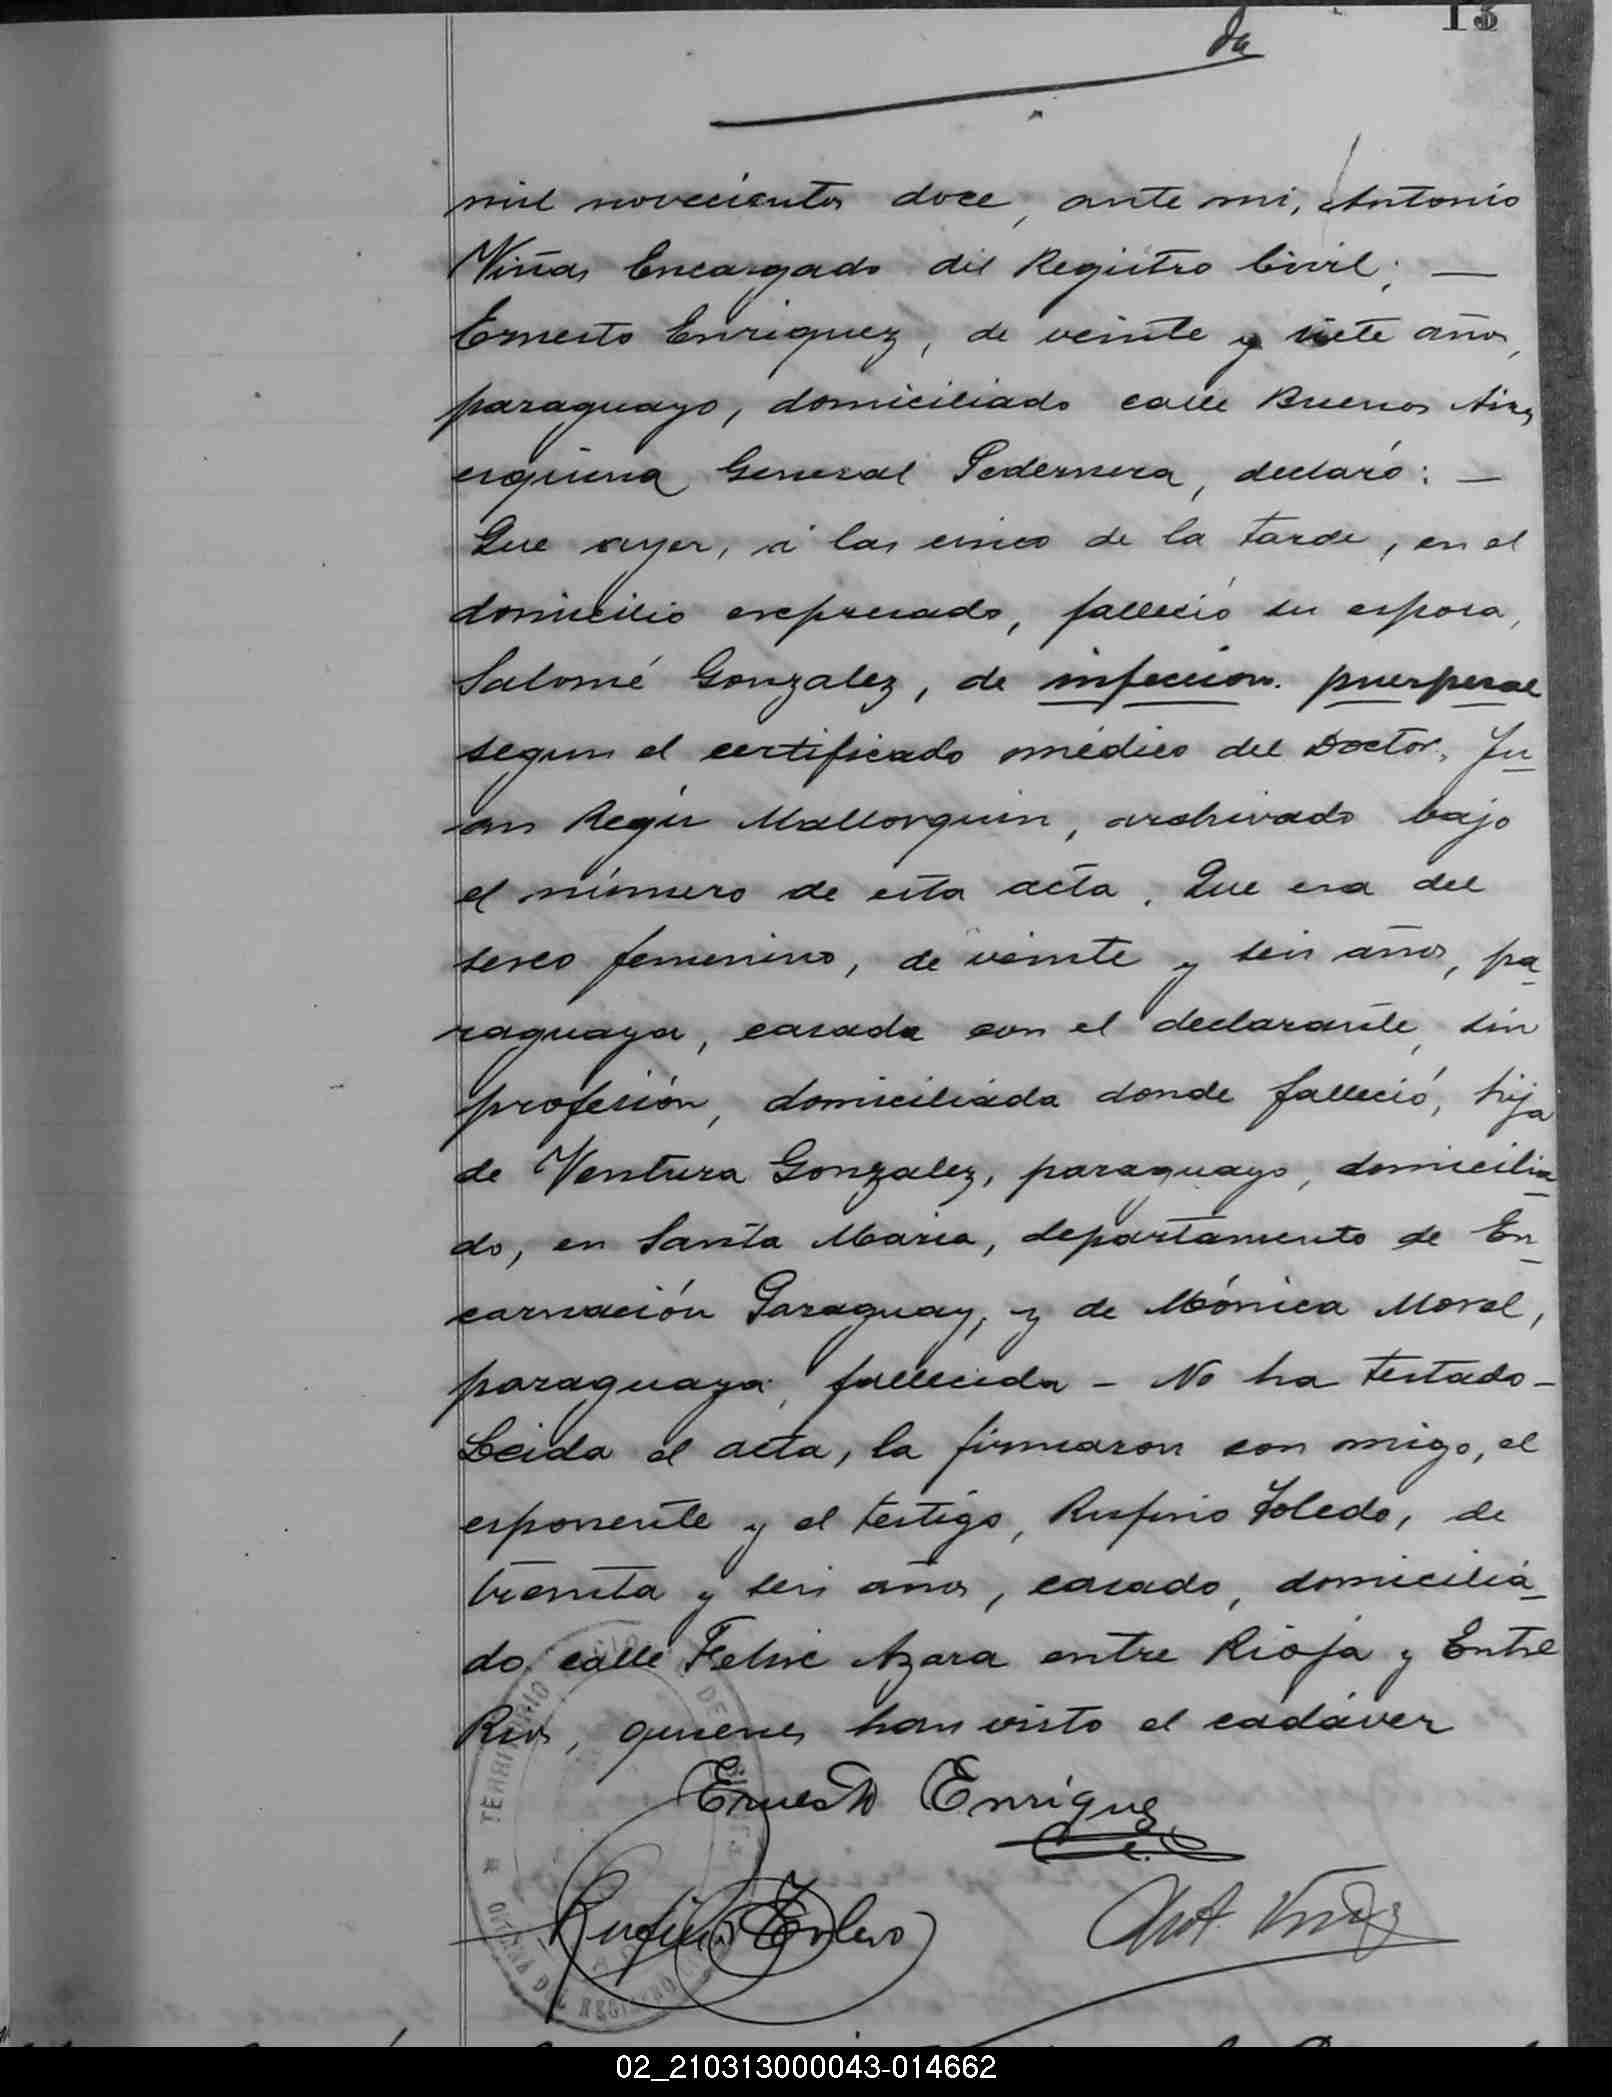 13
mil novecientos doce, ante mi, Antonio
Viñas Encargado del Registro Civil; —
Ernesto Enriquez, de veinte y siete años,
paraguayo, domiciliado calle Buenos Aires
esquina General Pedernera, declaró: —
Que ayer, á las cinco de la tarde, en el
domicilio expresado, falleció su esposa,
Salomé Gonzalez, de infeccion puerperal
segun el certificado médico del Doctor, Ju-
an Regis Mallorquin, archivado bajo
el número de esta acta. Que era del
sexo femenino, de veinte y seis años, pa-
raguaya, casada con el declarante, sin
profesión, domiciliada donde falleció, hija
de Ventura Gonzalez, paraguayo, domicilia-
do, en Santa Maria, departamento de En-
carnación Paraguay, y de Mónica Morel,
paraguaya, fallecida - No ha testado -
Leida el acta, la firmaron con migo, el
esponente y el testigo, Rufino Toledo, de
treinta y seis años, casado, domicilia-
do, calle Felix Azara entre Rioja y Entre
Rios, quienes han visto el cadáver
Ernesto Enriquez
Rufino Toledo
Ant. Viñas
TERRITORIO DE
OFICINA DEL REGISTRO
02_210313000043-014662